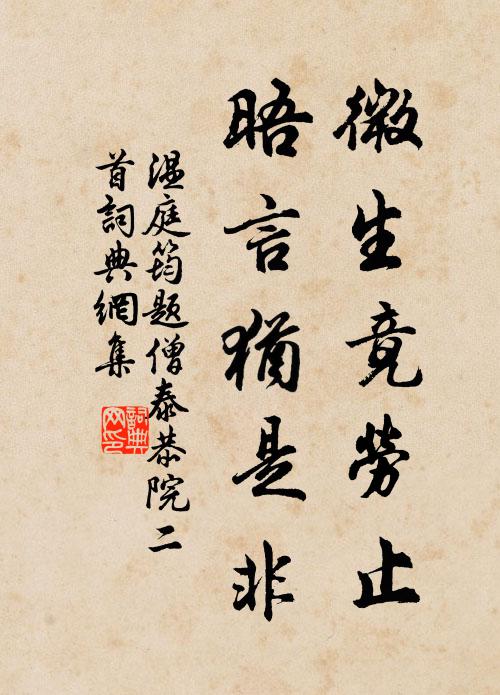 微生竟勞止
晤言猶是非
溫庭筠題僧泰恭院二
首詞典網集
詞典
网印